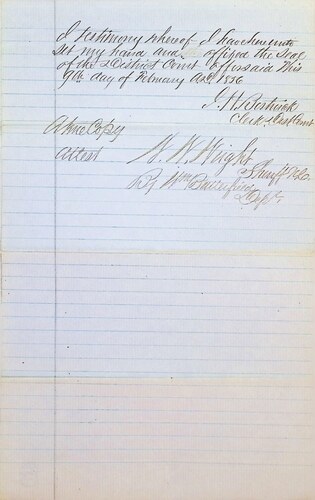 I testimony whereof I have hereunto
set my hand and affixed the Seal
of the District Court aforesaid this
9th day of February AD 1856
Clerk Dist Court
A true Copy
Attest
N. W. Wright
Sheriff
By Wm Butterfield
Depty